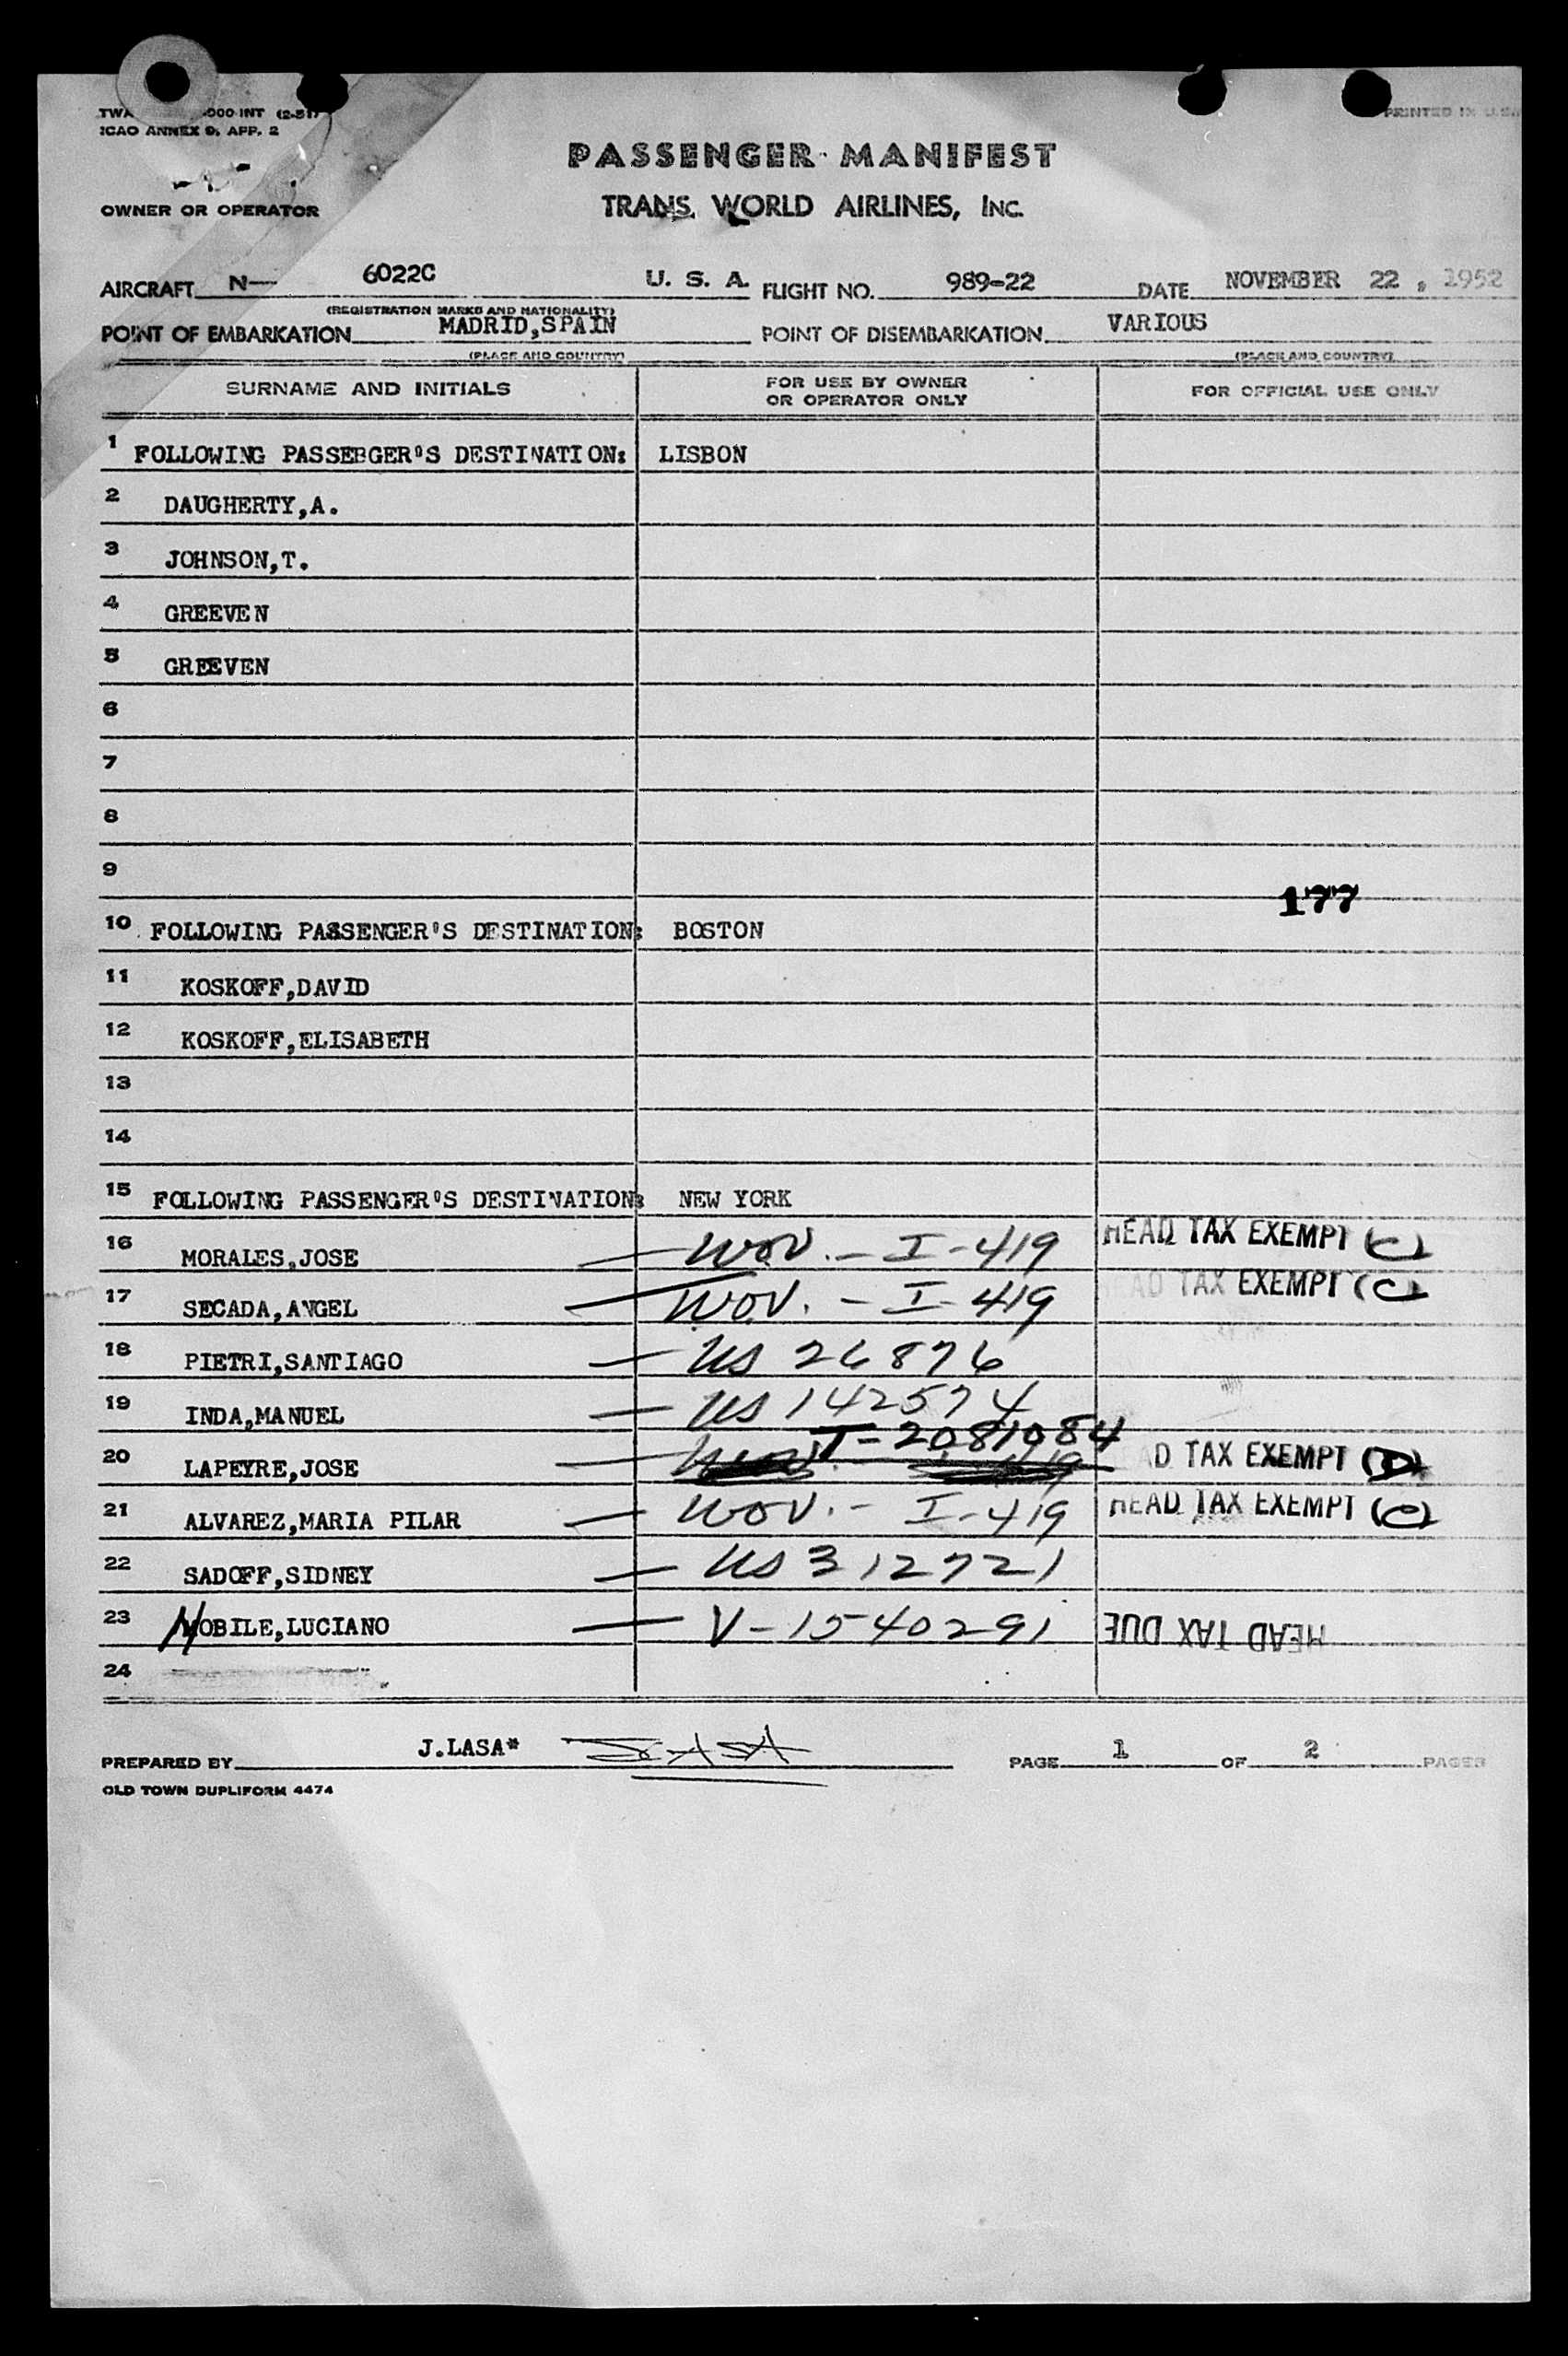 TWA 000 INT (2-51) PRINTED IN U.S.
ICAO ANNEX 9, APP. 2
PASSENGER MANIFEST
OWNER OR OPERATOR TRANS WORLD AIRLINES, INC.
AIRCRAFT N— 6022C U. S. A. FLIGHT NO. 989-22 DATE NOVEMBER 22, 1952
(REGISTRATION MARKS AND NATIONALITY)
POINT OF EMBARKATION MADRID,SPAIN POINT OF DISEMBARKATION VARIOUS
(PLACE AND COUNTRY) (PLACE AND COUNTRY)
SURNAME AND INITIALS FOR USE BY OWNER OR OPERATOR ONLY FOR OFFICIAL USE ONLY
1 FOLLOWING PASSEBGER'S DESTINATION: LISBON
2 DAUGHERTY,A.
3 JOHNSON,T.
4 GREEVEN
5 GREEVEN
6
7
8
9
177
10 FOLLOWING PASSENGER'S DESTINATION: BOSTON
11 KOSKOFF,DAVID
12 KOSKOFF,ELISABETH
13
14
15 FOLLOWING PASSENGER'S DESTINATION: NEW YORK
16 MORALES,JOSE — WOV. - I-419 HEAD TAX EXEMPT (C)
17 SECADA,ANGEL — WOV. - I-419 HEAD TAX EXEMPT (C)
18 PIETRI,SANTIAGO — US 26876
19 INDA,MANUEL — US 142574
20 LAPEYRE,JOSE — T-2081084 HEAD TAX EXEMPT
21 ALVAREZ,MARIA PILAR — WOV. - I-419 HEAD TAX EXEMPT (C)
22 SADOFF,SIDNEY — US 312721
23 NOBILE,LUCIANO — V-1540291 HEAD TAX DUE
24
PREPARED BY J.LASA* LASA PAGE 1 OF 2 PAGES
OLD TOWN DUPLIFORM 4474